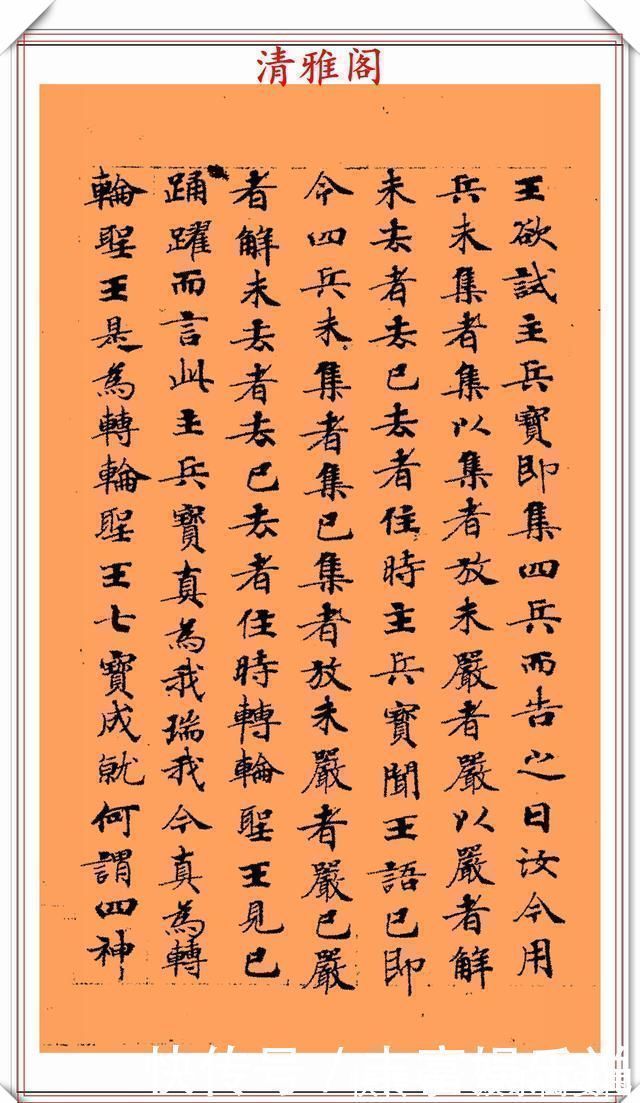 清雅阁
王欲試主兵寶即集四兵而告之曰汝今用
兵未集者集以集者放未嚴者嚴以嚴者解
未去者去已去者住時主兵寶聞王語已即
令四兵未集者集已集者放未嚴者嚴已嚴
者解未去者去已去者住時轉輪聖王見已
踊躍而言此主兵寶真為我瑞我今真為轉
輪聖王是為轉輪聖王七寶成就何謂四神
快传号/